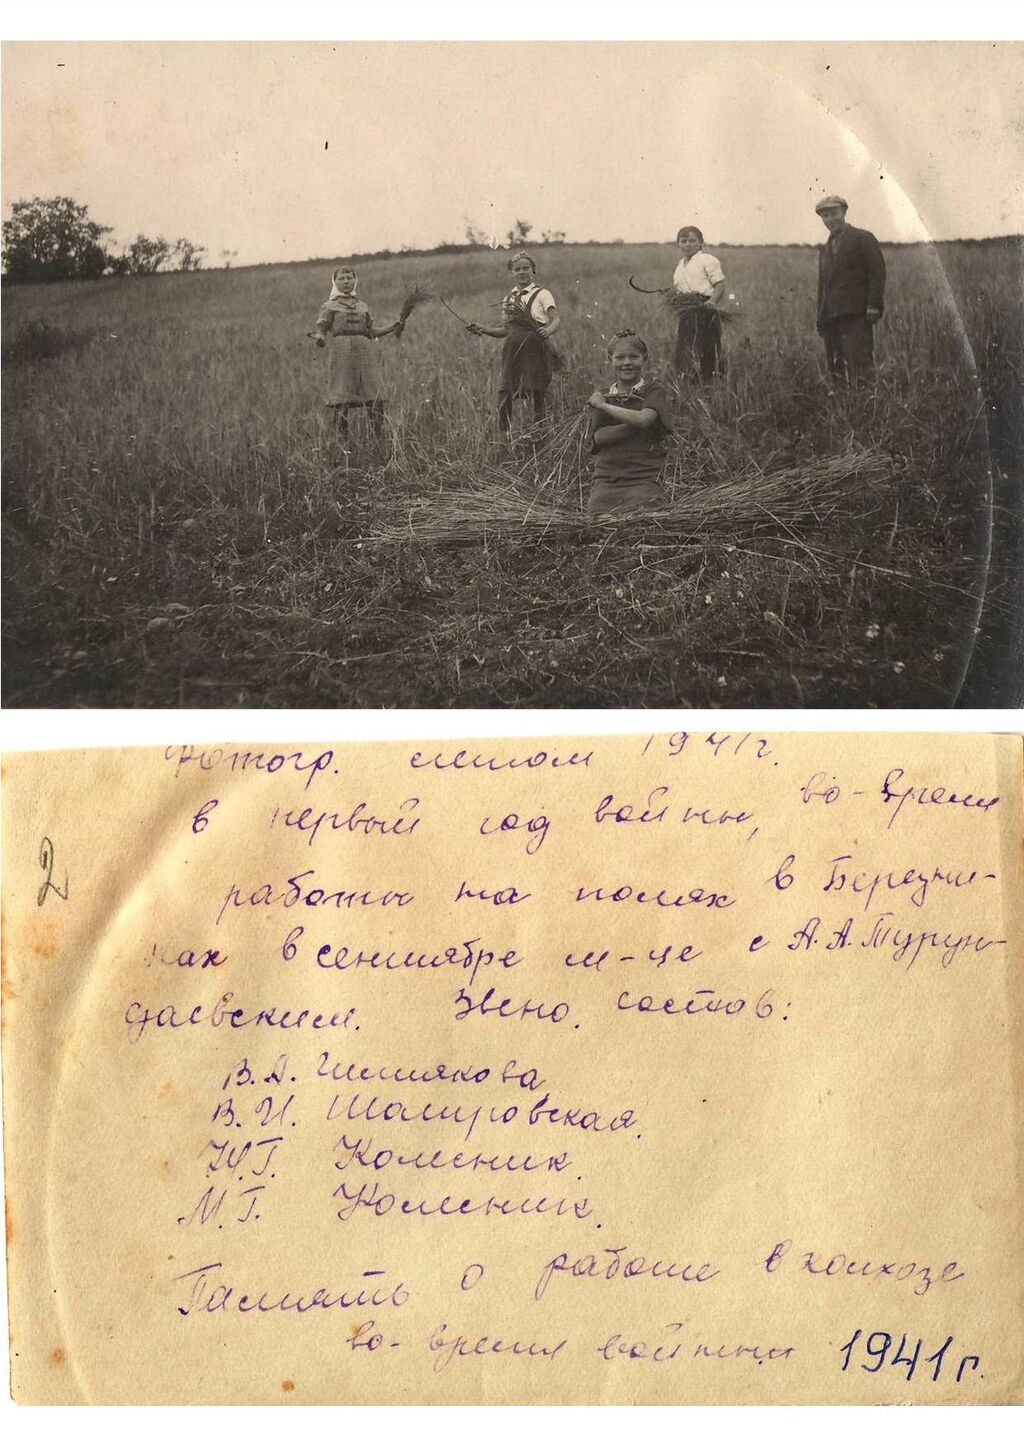 Фотогр. летом 1941 г.
в первый год войны, во-время
работы на полях в Березни-
ках в сентябре м-це с А.А. Турун-
даевским. Звено, состав:
В.А.
В.И.
Колесник.
М.Г. Колесник.
Память о работе в колхозе
во-время войны 1941 г.
2